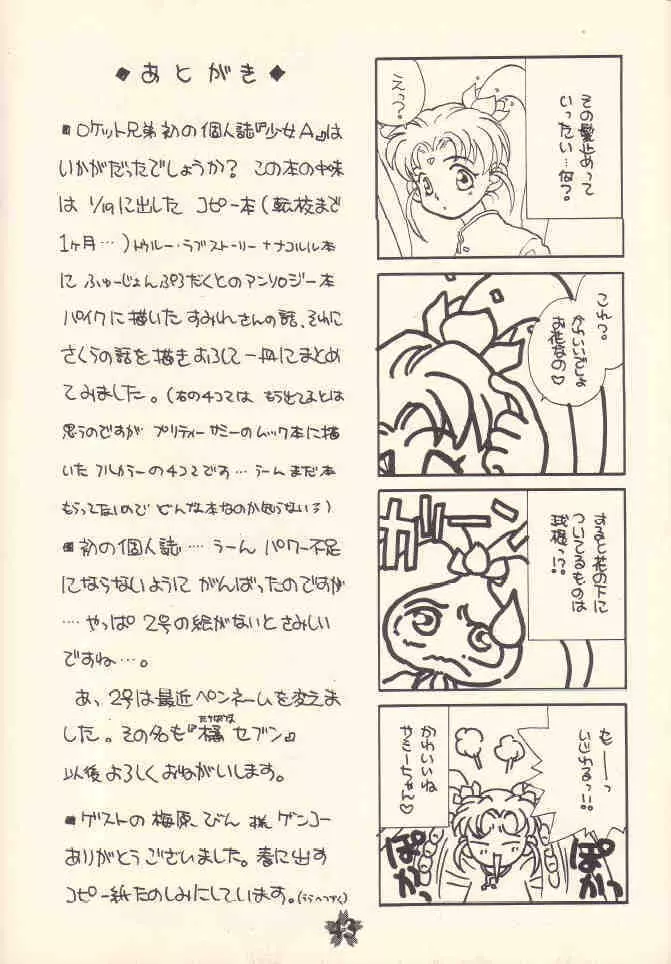 ◆あとがき◆
■ロケット兄弟初の個人誌『少女A』は
いかがだったでしょうか？この本の中味
は 1/19に出した コピー本(転校まで
1ヶ月…)トゥルー・ラブストーリー+ナコルル本
に ふゅーじょんぷろだくとのアンソロジー本
パイクに描いたすみれさんの話、それに
さくらの話を描きおろして一冊にまとめ
てみました。(右の4コマは もう出てるとは
思うのですが プリティーサミーのムック本に描
いた フルカラーの4コマです…うーんまだ本
もらってないので どんな本なのか知らない〜)
■初の個人誌……うーん パワー不足
にならないように がんばったのですが
……やっぱ 2号の絵がないとさみしい
ですね…。
あ、2号は最近ペンネームを変えま
した。その名も『橘セブン』
たちばな
以後よろしくおねがいします。
■ゲストの梅原びん様ゲンコー
ありがとうございました。春に出す
コピー紙たのしみにしています。(うらへつづく)
その髪止めって
いったい…何？。
えっ？。
これ？。
かわいいでしょ
お花なの♡
すると花の下に
ついてるものは
球根っ!?
ガーン
もーっ
いじわるっ!!
かわいいね
サミーちゃん♡
ぽかっ
ぽかっ
43